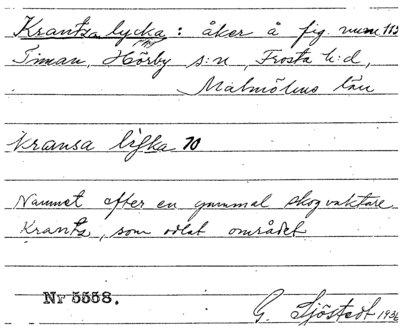 Krantza lycka: åker å fig. num 113
Timan, Hörby s:n, Frosta h:d,
Malmöhus län
kransa lykka 70
Namnet efter en gammal skogvaktare
Krantz, som odlat området
Nr 5558.
G. Sjöstedt 1936